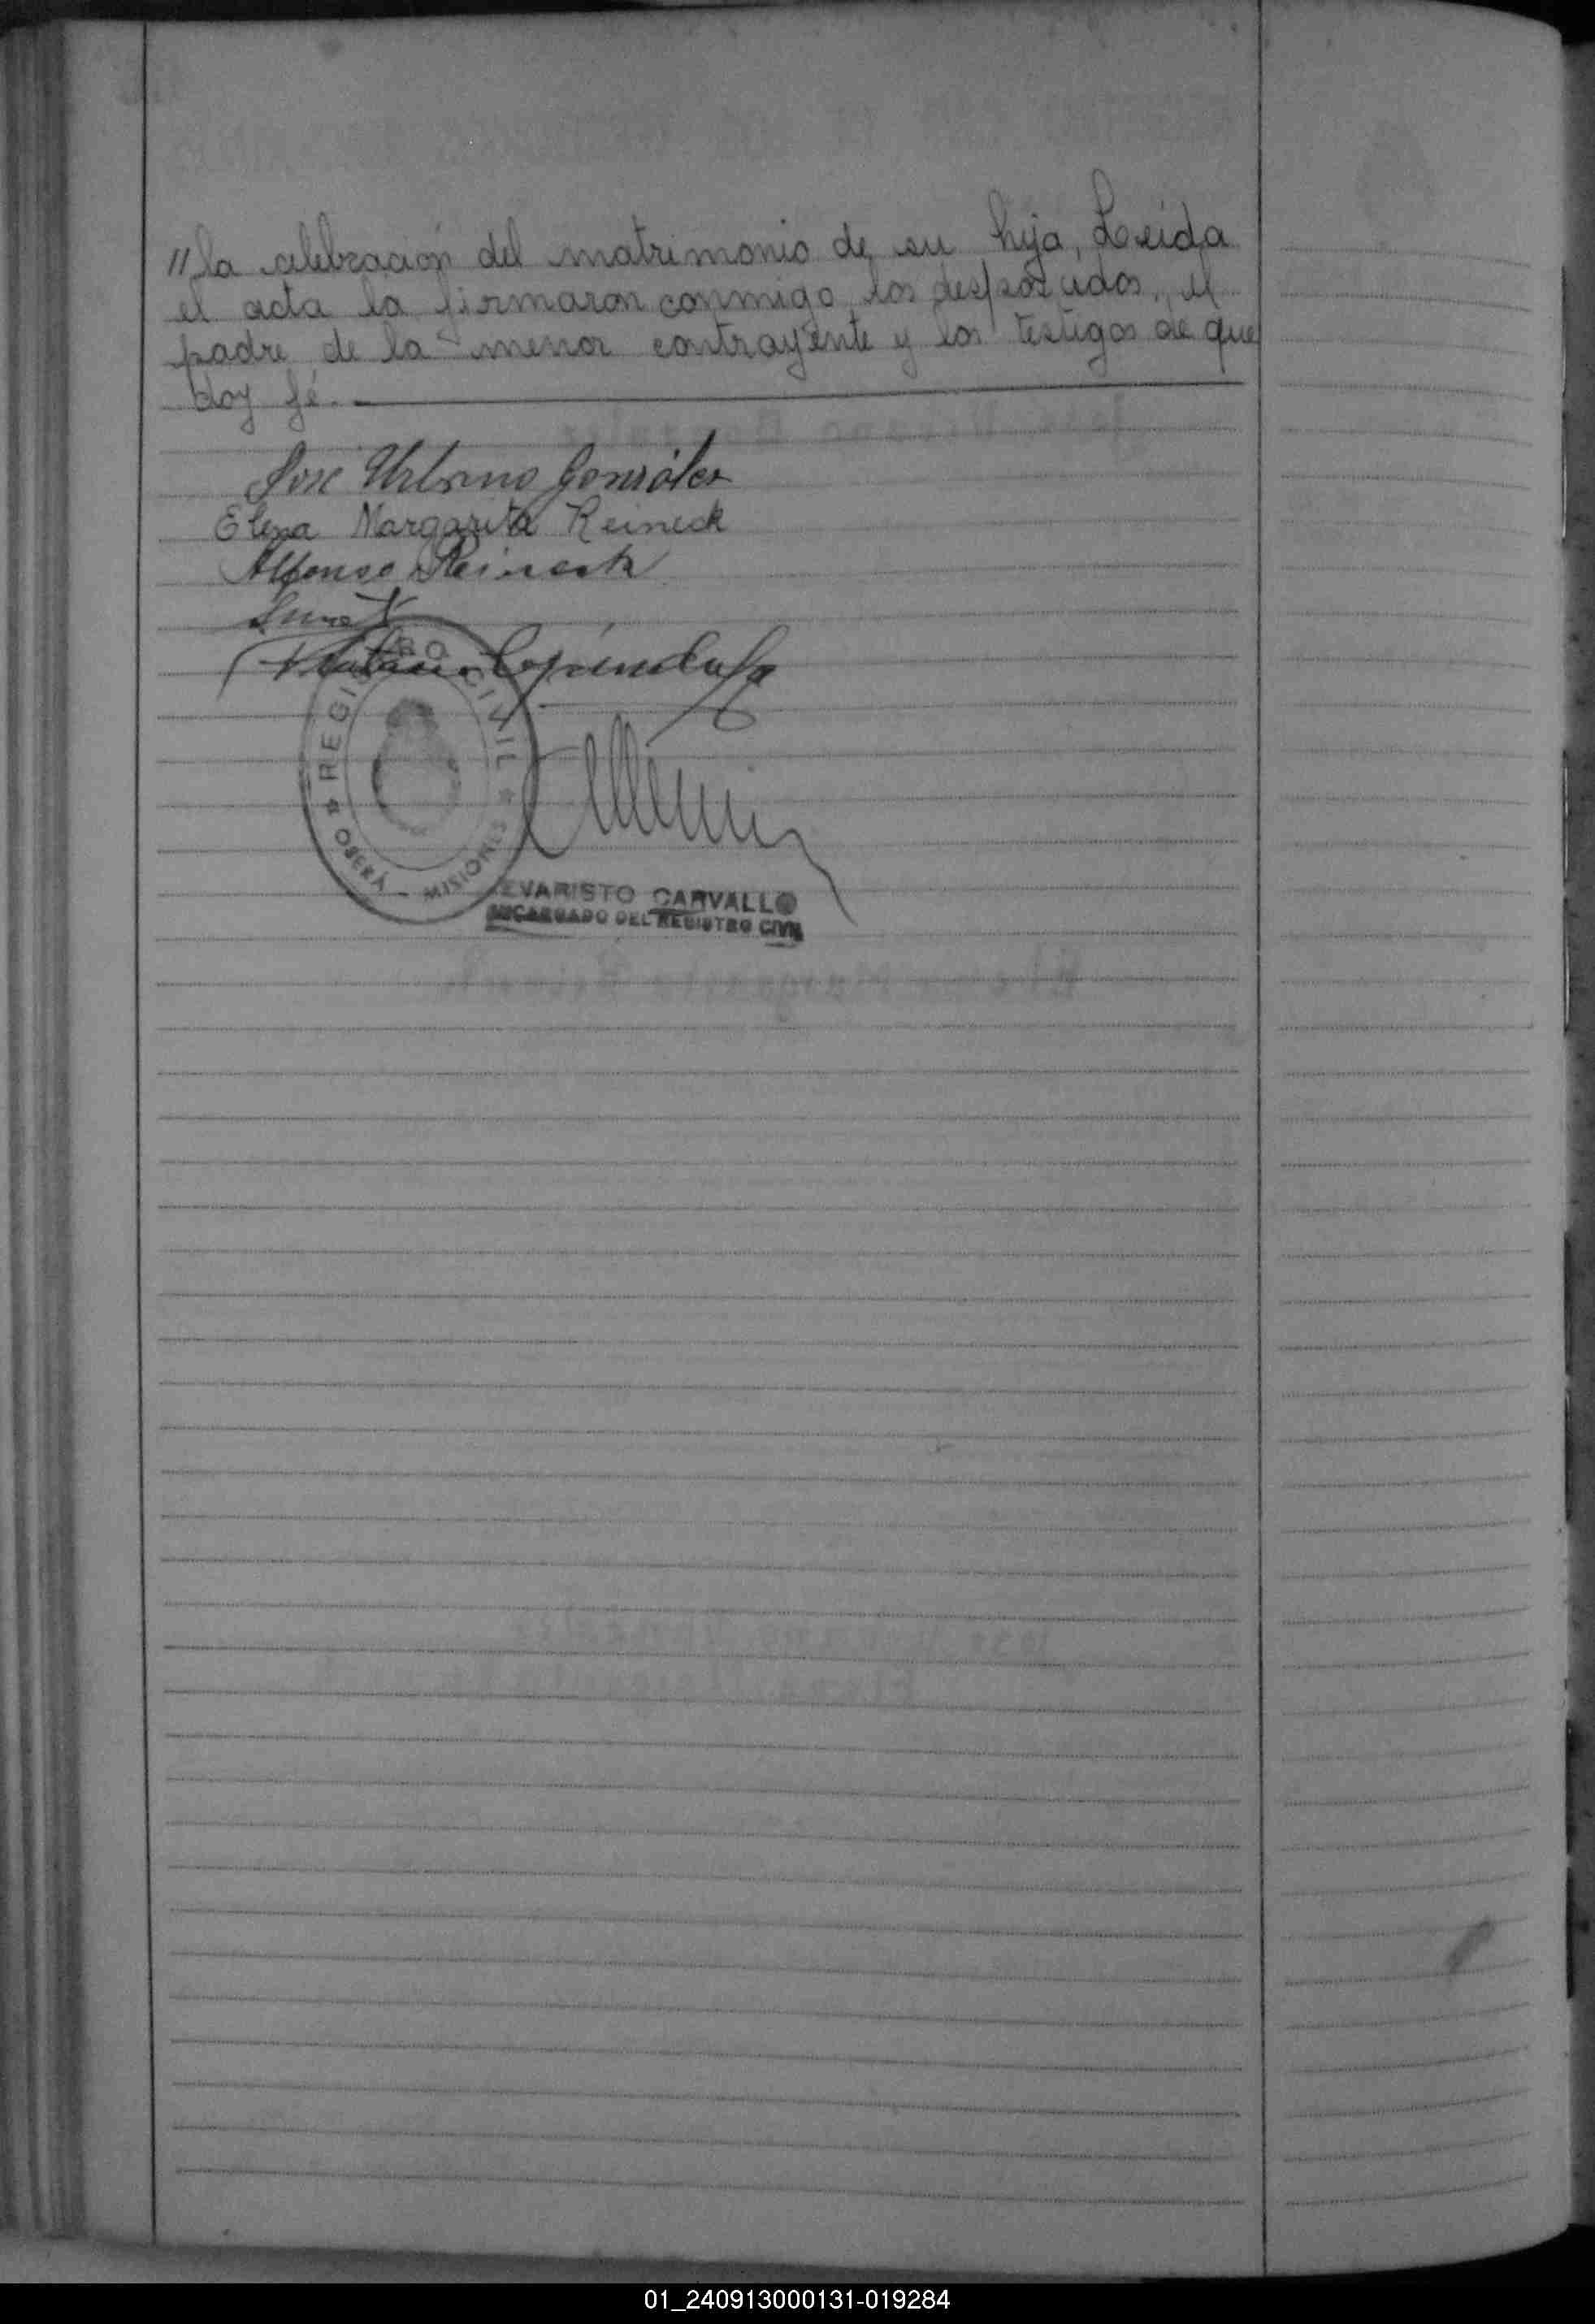 "la celebracion del matrimonio de su hija, Leida
el acta la firmaron conmigo los desposados, el
padre de la menor contrayente y los testigos de que
doy fé.
Jose Urbano González
Elena Margarita Reineck
Alfonso Reineck
REGISTRO CIVIL
OBERÁ - MISIONES
EVARISTO CARVALLO
ENCARGADO DEL REGISTRO CIVIL
01_240913000131-019284